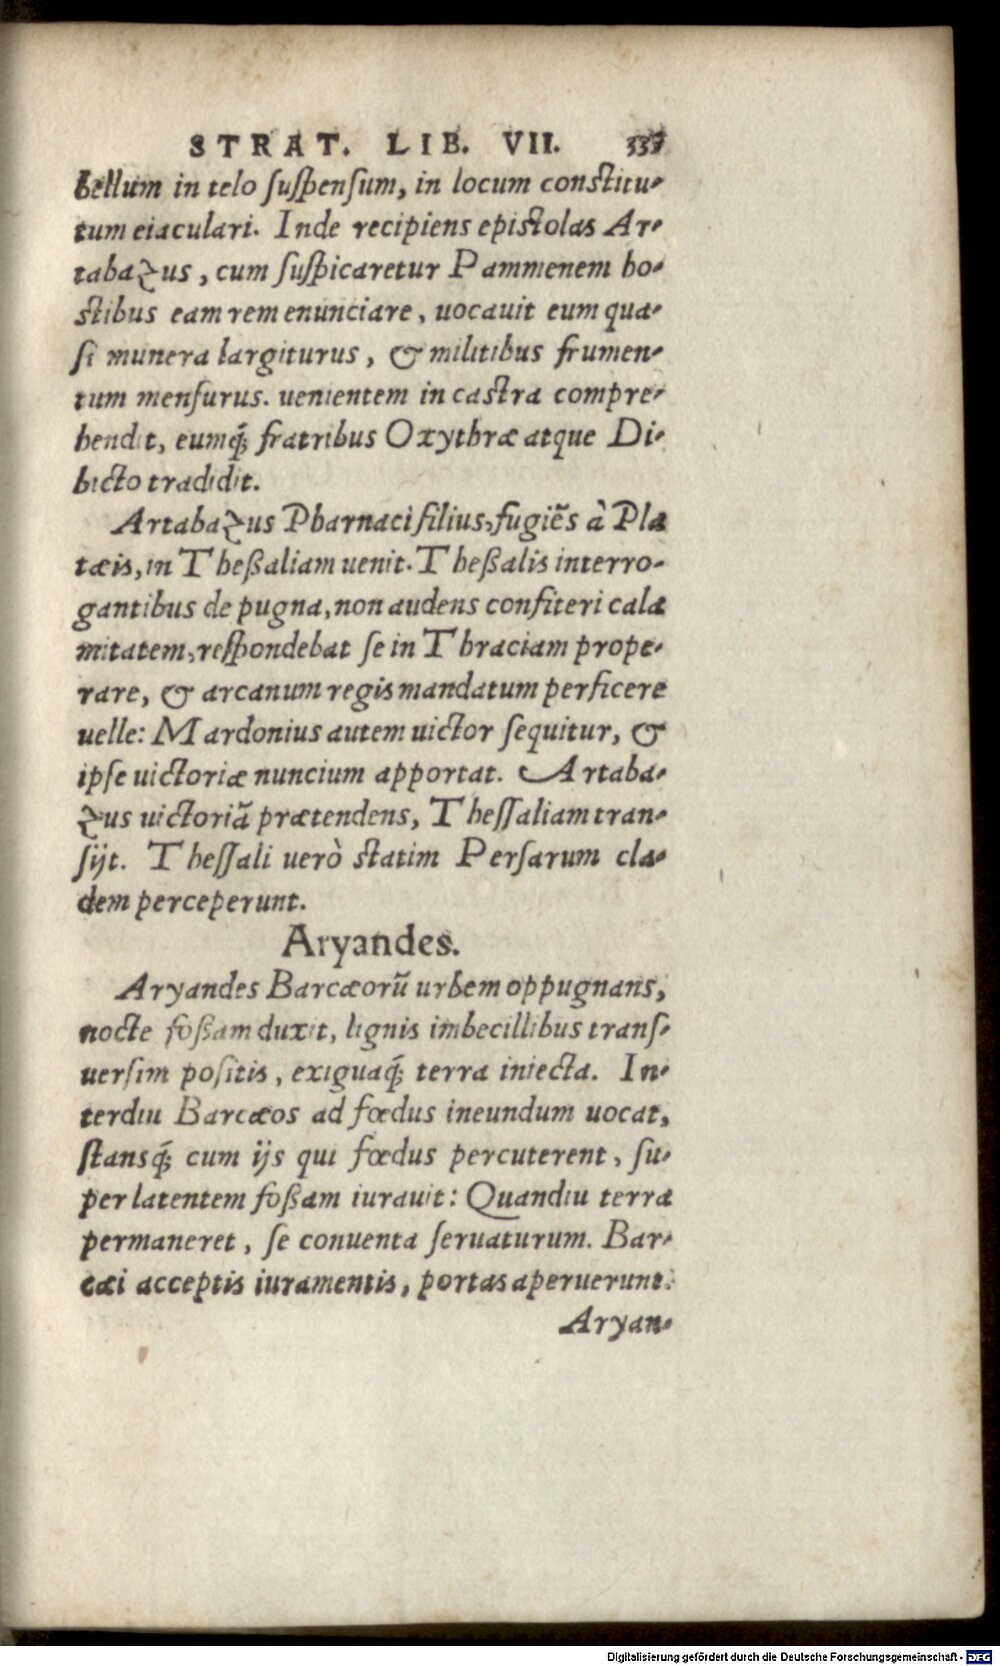 STRAT. LIB. VII. 337
bellum in telo suspensum, in locum constitu-
tum eiaculari. Inde recipiens epistolas Ar-
tabazus, cum suspicaretur Pammenem ho-
stibus eam rem enunciare, uocauit eum qua-
si munera largiturus, & militibus frumen-
tum mensurus. uenientem in castra compre-
hendit, eumq́; fratribus Oxythræ atque Di-
bicto tradidit.
Artabazus Pharnaci filius, fugiẽs à Pla
tæis, in Theßaliam uenit. Theßalis interro-
gantibus de pugna, non audens confiteri cala
mitatem, respondebat se in Thraciam prope-
rare, & arcanum regis mandatum perficere
uelle: Mardonius autem uictor sequitur, &
ipse uictoriæ nuncium apportat. Artaba-
zus uictoriã prætendens, Thessaliam tran-
sijt. Thessali uerò statim Persarum cla-
dem perceperunt.
Aryandes.
Aryandes Barcæorũ urbem oppugnans,
nocte foßam duxit, lignis imbecillibus trans-
uersim positis, exiguaq́; terra iniecta. In-
terdiu Barcæos ad fœdus ineundum uocat,
stansq́; cum ijs qui fœdus percuterent, su-
per latentem foßam iurauit: Quandiu terra
permaneret, se conuenta seruaturum. Bar-
cæi acceptis iuramentis, portas aperuerunt.
Aryan-
Digitalisierung gefördert durch die Deutsche Forschungsgemeinschaft - DFG